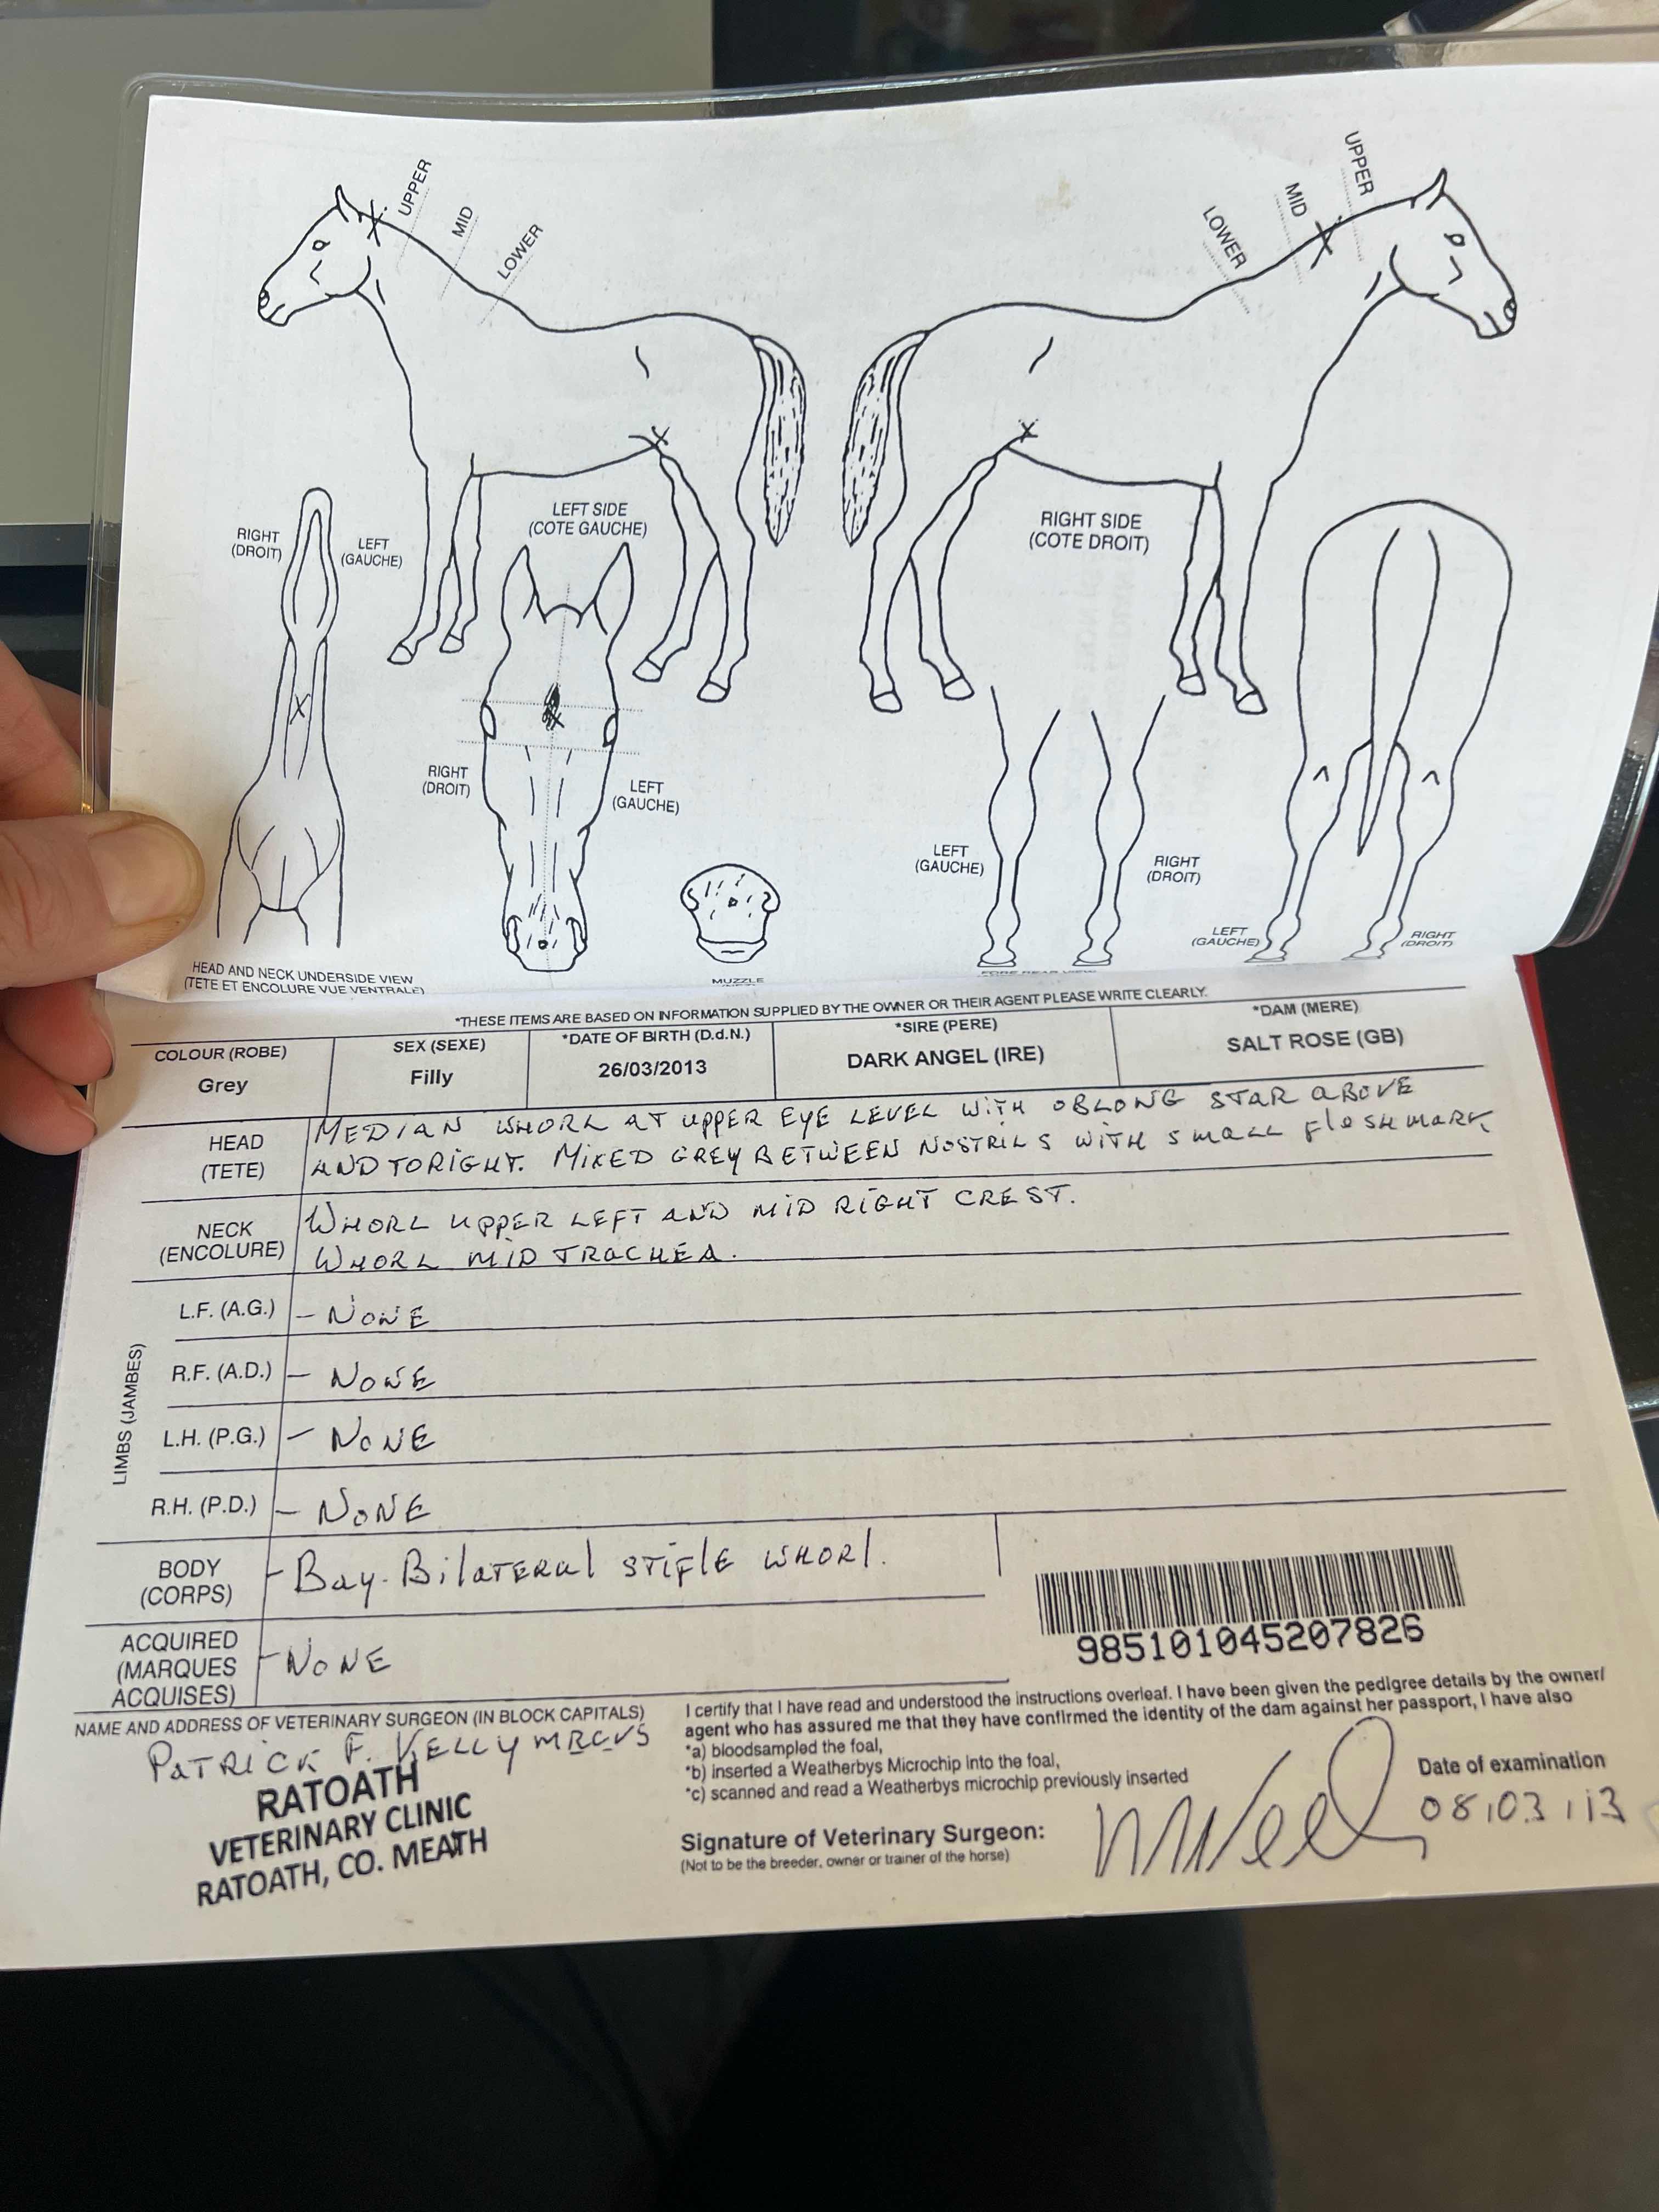 UPPER
MID
LOWER
UPPER
MID
LOWER
LEFT SIDE
(COTE GAUCHE)
RIGHT SIDE
(COTE DROIT)
RIGHT
(DROIT)
LEFT
(GAUCHE)
RIGHT
(DROIT)
LEFT
(GAUCHE)
LEFT
(GAUCHE)
RIGHT
(DROIT)
LEFT
(GAUCHE)
RIGHT
(DROIT)
HEAD AND NECK UNDERSIDE VIEW
(TETE ET ENCOLURE VUE VENTRALE)
MUZZLE
FORE REAR VIEW
*THESE ITEMS ARE BASED ON INFORMATION SUPPLIED BY THE OWNER OR THEIR AGENT PLEASE WRITE CLEARLY.
COLOUR (ROBE)
Grey
SEX (SEXE)
Filly
*DATE OF BIRTH (D.d.N.)
26/03/2013
*SIRE (PERE)
DARK ANGEL (IRE)
*DAM (MERE)
SALT ROSE (GB)
HEAD
(TETE)
MEDIAN WHORL AT UPPER EYE LEVEL WITH OBLONG STAR ABOVE
AND TO RIGHT. MIXED GREY BETWEEN NOSTRILS WITH SMALL FLESHMARK
NECK
(ENCOLURE)
WHORL UPPER LEFT AND MID RIGHT CREST.
WHORL MID TRACHEA.
LIMBS (JAMBES)
L.F. (A.G.) - NONE
R.F. (A.D.) - NONE
L.H. (P.G.) - NONE
R.H. (P.D.) - NONE
BODY
(CORPS)
- Bay. Bilateral stifle whorl.
ACQUIRED
(MARQUES
ACQUISES)
- NONE
985101045207826
NAME AND ADDRESS OF VETERINARY SURGEON (IN BLOCK CAPITALS)
PATRICK F. KELLY MRCVS
RATOATH
VETERINARY CLINIC
RATOATH, CO. MEATH
I certify that I have read and understood the instructions overleaf. I have been given the pedigree details by the owner/
agent who has assured me that they have confirmed the identity of the dam against her passport, I have also
*a) bloodsampled the foal,
*b) inserted a Weatherbys Microchip into the foal,
*c) scanned and read a Weatherbys microchip previously inserted
Signature of Veterinary Surgeon:
(Not to be the breeder, owner or trainer of the horse)
Date of examination
08/03/13